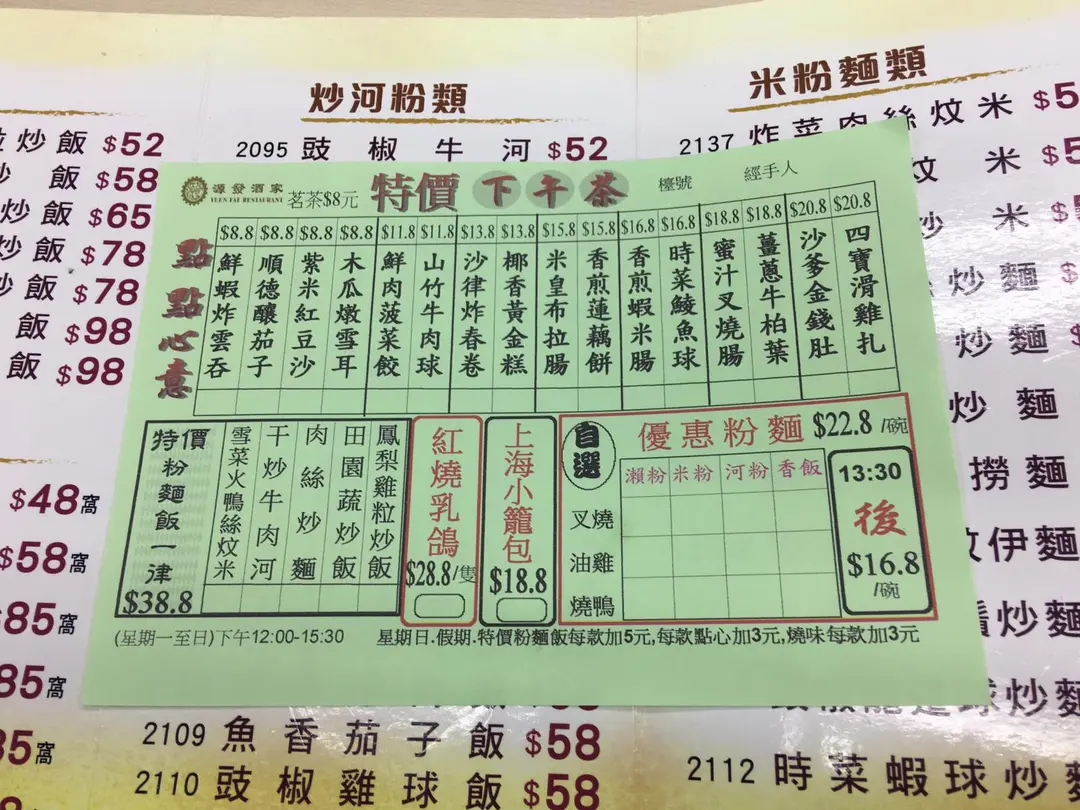 炒河粉類
米粉麵類
炒飯 $52
飯 $58
炒飯 $65
炒飯 $78
炒飯 $78
飯 $98
飯 $98
2095 豉椒牛河 $52
2137 炸菜肉絲炆米 $5
炆米 $5
米 $5
炒麵
炒麵
炒麵
撈麵
伊麵
炒麵
球炒麵
源發酒家
YUEN FAT RESTAURANT
茗茶$8元
特價 下午茶
檯號
經手人
點點心意
$8.8 鮮蝦炸雲吞
$8.8 順德釀茄子
$8.8 紫米紅豆沙
$8.8 木瓜燉雪耳
$11.8 鮮肉菠菜餃
$11.8 山竹牛肉球
$13.8 沙律炸春卷
$13.8 椰香黃金糕
$15.8 米皇布拉腸
$15.8 香煎蓮藕餅
$16.8 香煎蝦米腸
$16.8 時菜鯪魚球
$18.8 蜜汁叉燒腸
$18.8 薑蔥牛柏葉
$20.8 沙爹金錢肚
$20.8 四寶滑雞扎
特價
粉麵飯一律
$38.8
雪菜火鴨絲炆米
干炒牛肉河
肉絲炒麵
田園蔬炒飯
鳳梨雞粒炒飯
紅燒乳鴿
$28.8/隻
上海小籠包
$18.8
自選
優惠粉麵 $22.8/碗
瀨粉 米粉 河粉 香飯
叉燒
油雞
燒鴨
13:30
後
$16.8
/碗
(星期一至日)下午12:00-15:30
星期日.假期.特價粉麵飯每款加5元,每款點心加3元,燒味每款加3元
$48窩
$58窩
$85窩
85窩
窩
2109 魚香茄子飯 $58
2110 豉椒雞球飯 $58
2112 時菜蝦球炒麵